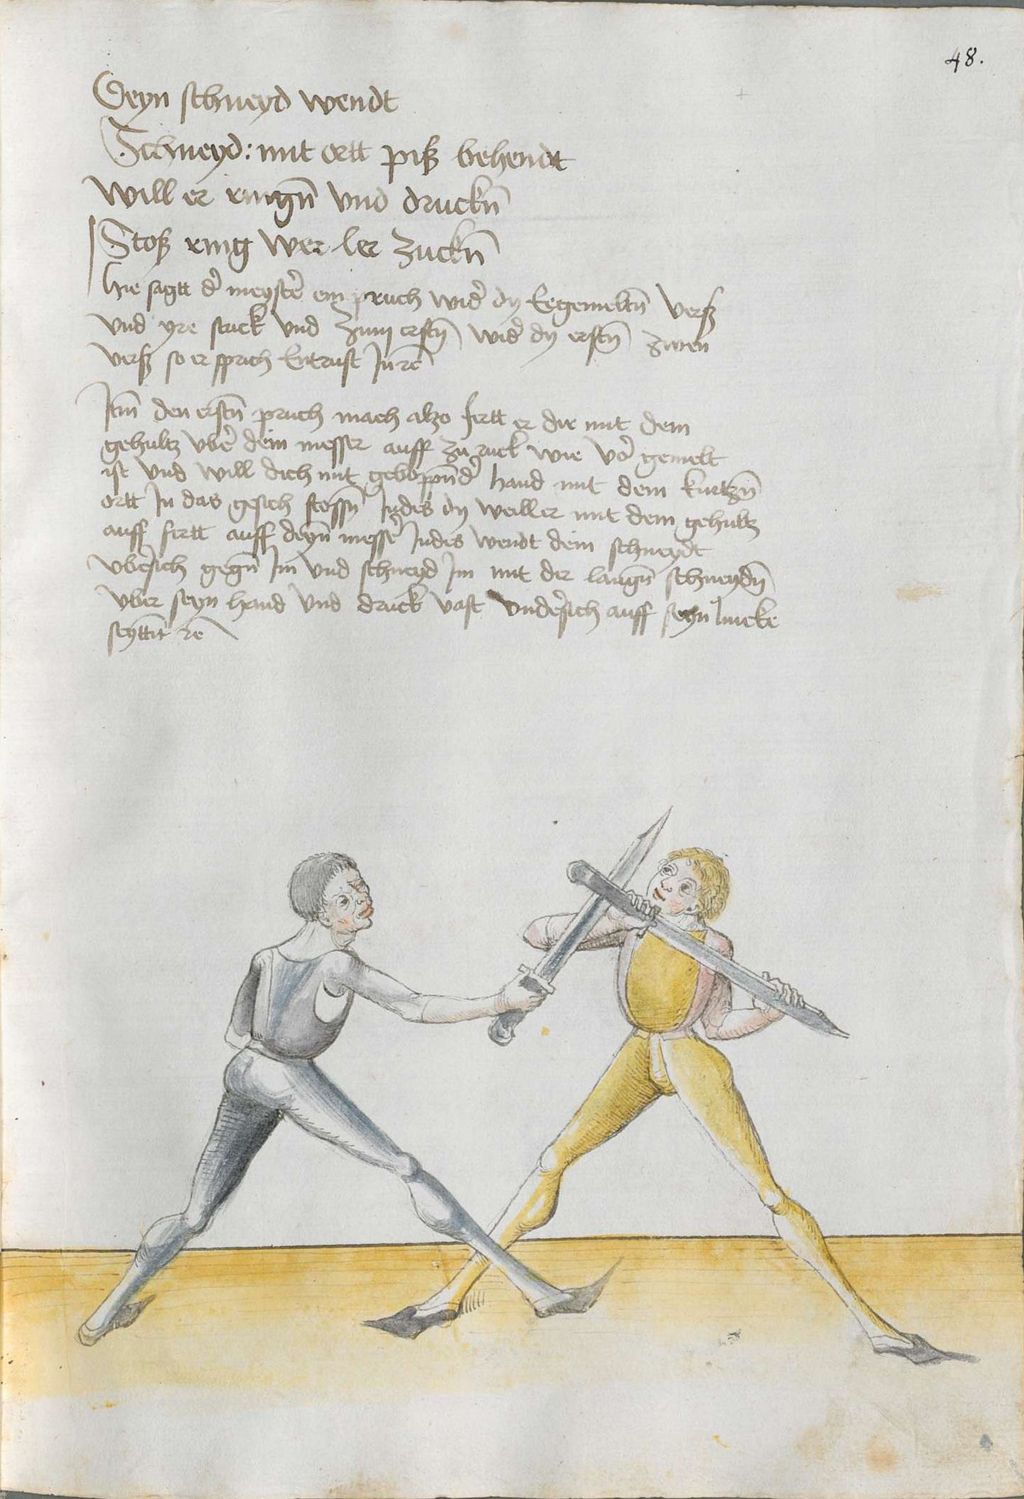 48.
Deyn schneyd wendt
Schneyd: mit ortt piß behendt
Will er ringn̄ vnd druckn̄
Stoß ring wer ler zuckn̄
Hie sagtt d' meyst' ein pruch wid' dy egemeltn̄ verß
vnd yre stuck vnd zum erstn̄ wid' dy erstn̄ zwen
verß so er sprich Entrust In rē
Itm̄ den erstn̄ pruch mach also fertt er dir mit dem
gehultz vber dein messer auff zu ruck wie vor gemelt
ist vnd will dich mit gewappnd' hand mit dem kurtzn̄
ortt In das gesich stossn̄ Indes dy weill er mit dem gehultz
auff fertt auff deyn messer Indes wendt dein schneydt
vbersich gegn̄ Im vnd schneyd Im mit der langn̄ schneydn̄
vber seyn hand vnd druck vast vndersich auff seyn lincke
seyttn̄ rē